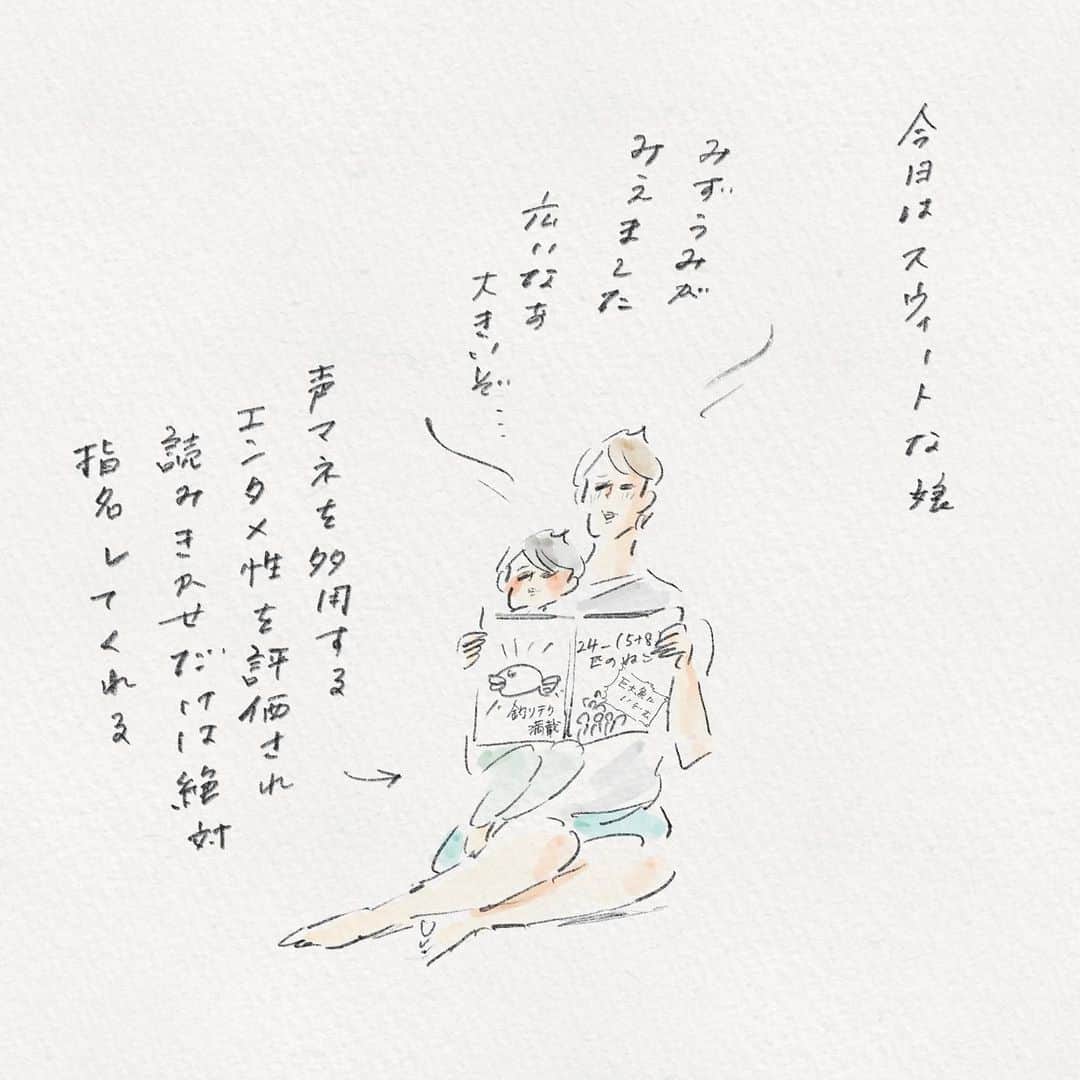 今日はスウィートな娘
みずうみが
みえました
広いなあ
大きいぞ…
声マネを多用する
エンタメ性を評価され
読みきかせだけは絶対
指名してくれる
釣りテク
満載
24-(5+8)
匹のねこ
巨大魚に